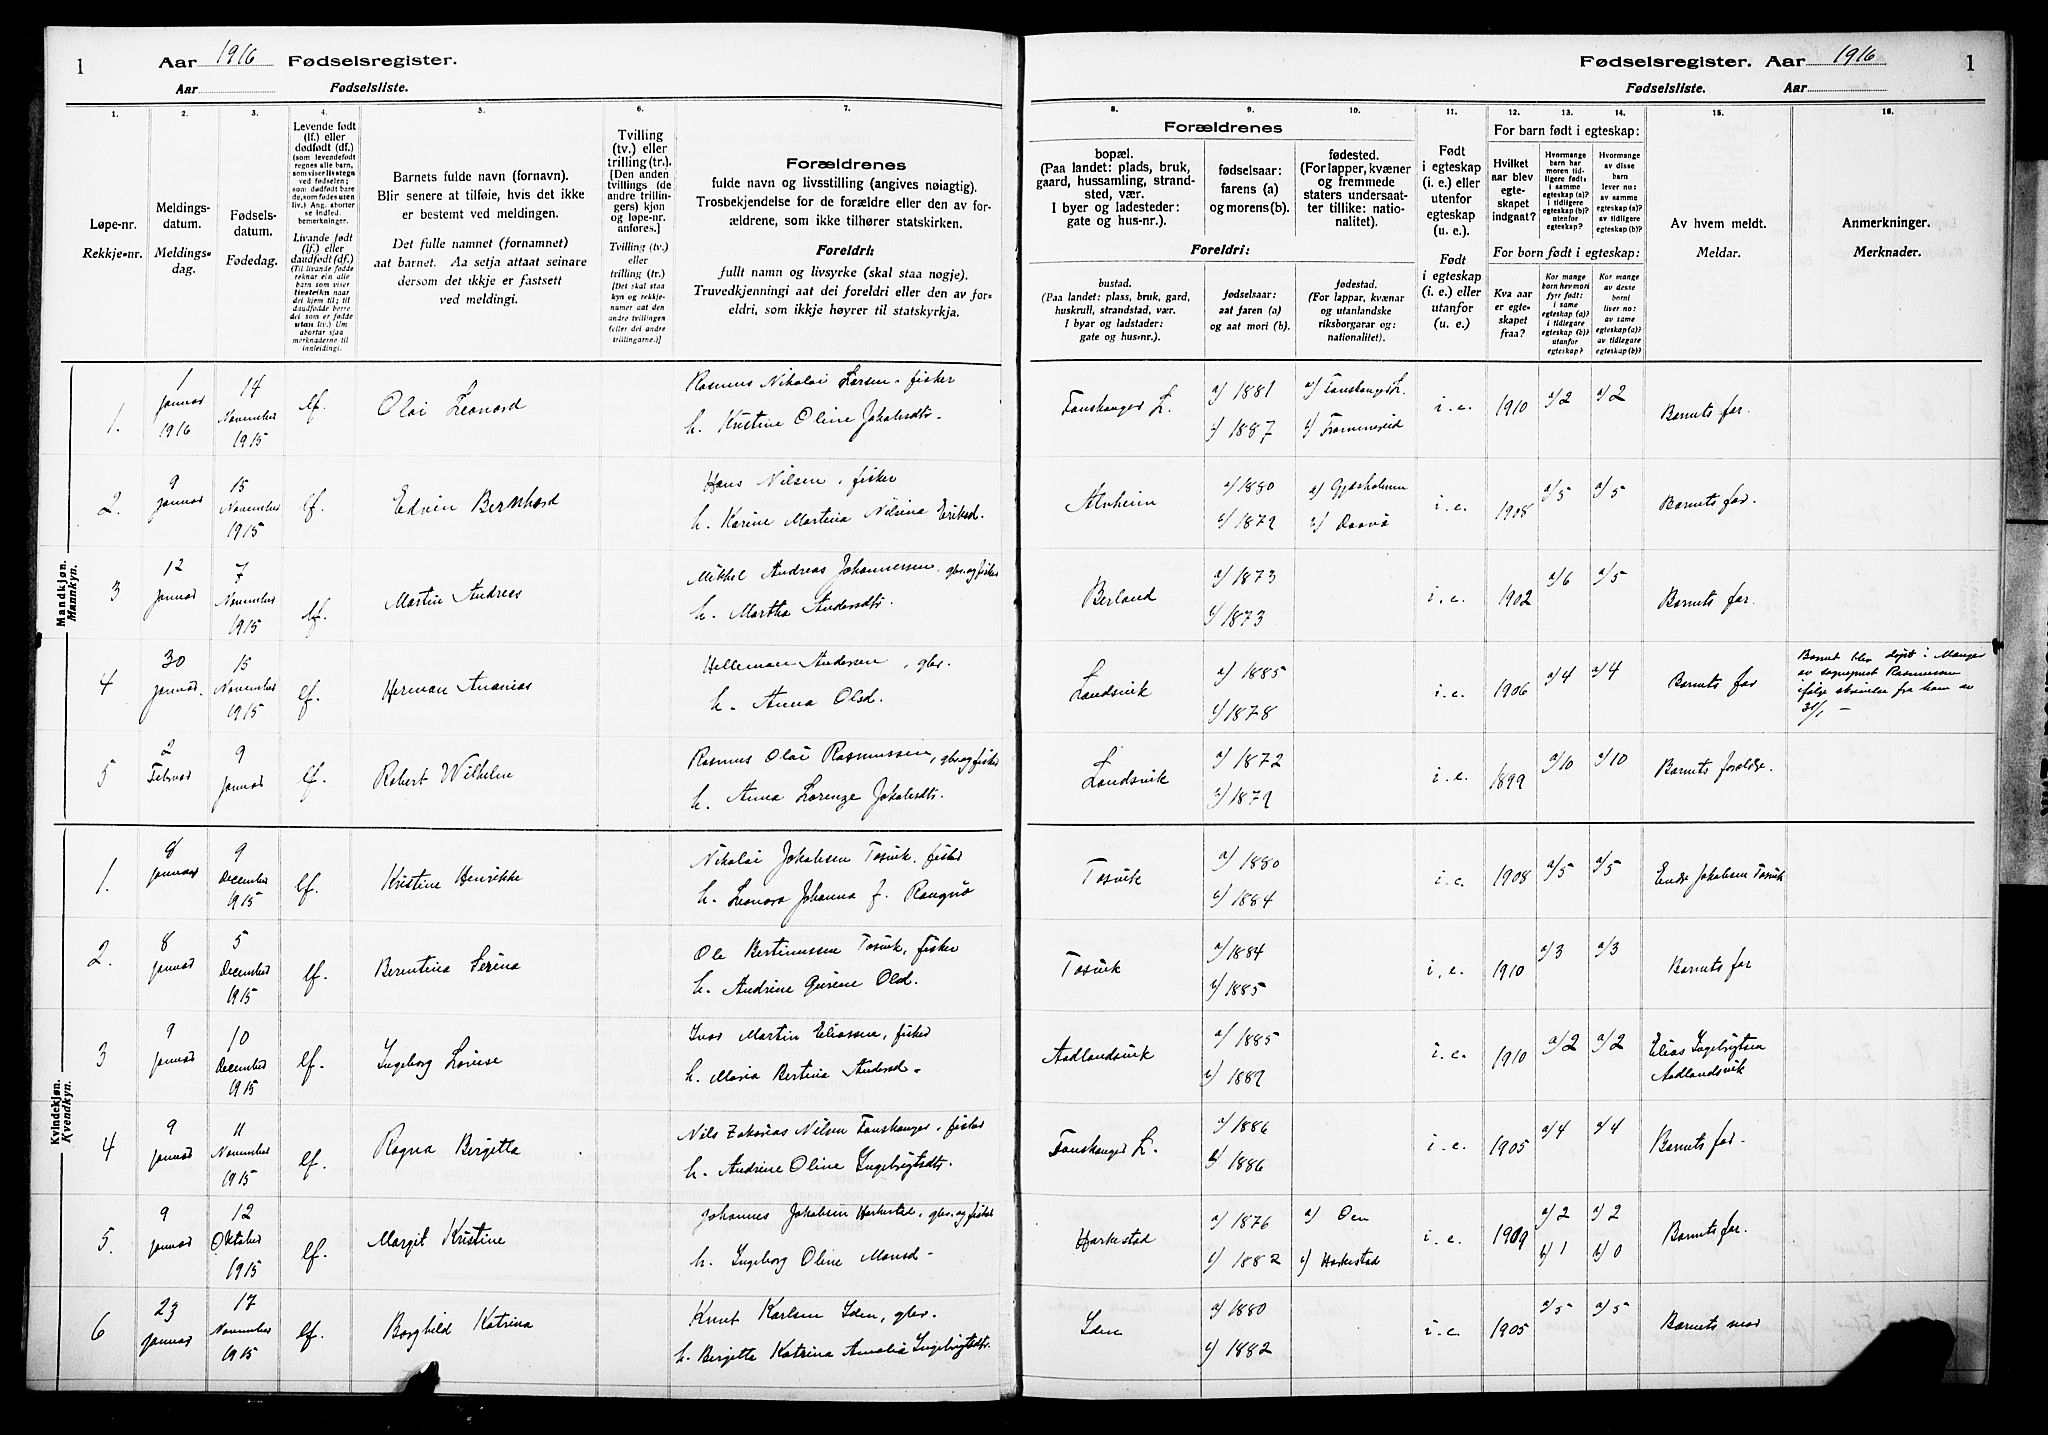 1
Aar 1916 Fødselsregister.
Aar Fødselsliste.
1.
2.
3.
4.
5.
6.
7.
Løpe-nr.
Rekkje-nr.
Meldings-
datum.
Meldings-
dag.
Fødsels-
datum.
Fødedag.
Levende født
(lf.) eller
dødfødt (df.)
Livande født
(lf.) eller
daudfødt (df.)
Barnets fulde navn (fornavn).
Blir senere at tilføie, hvis det ikke
er bestemt ved meldingen.
Det fulle namnet (fornamnet)
aat barnet. Aa setja attaat seinare
dersom det ikkje er fastsett
ved meldingi.
Tvilling
(tv.) eller
trilling (tr.).
[Den anden
tvillings (de
andre trillin-
gers) kjøn
og løpe-nr.
anføres.]
Tvilling (tv.)
eller
trilling (tr.)
[Det skal staa
kyn og rekkje-
numer aat den
andre tvillingen
(eller dei andre
trillingarne.)]
Forældrenes
fulde navn og livsstilling (angives nøiagtig).
Trosbekjendelse for de forældre eller den av for-
ældrene, som ikke tilhører statskirken.
Foreldri:
fullt namn og livsyrke (skal staa nøgje).
Truvedkjenningi aat dei foreldri eller den av for-
eldri, som ikkje høyrer til statskyrkja.
Mandkjøn.
Mannkyn.
1.
1 Januar 1916
14 November 1915
lf.
Olai Leonard
Rasmus Nikolai Larsen, fisker
h. Kristine Oline Jakobsdtr.
2.
9 Januar
15 November 1915
lf.
Edvin Bernhard
Hans Nilsen, fisker
h. Karine Martina Nilsina Eriksd.
3
12 Januar
7 November 1915
lf.
Martin Andreas
Mikkel Andreas Johannessen, gbr. og fisker
h. Martha Andersdtr.
4
30 Januar.
15 November 1915
lf.
Herman Ananias
Helleman Andersen, gbr.
h. Anna Olsd.
5
2 Februar
9 Januar
lf.
Robert Wilhelm
Rasmus Olai Rasmussen, gbr og fisker
h. Anna Lorenze Jakobsdtr.
Kvindekjøn.
Kvendkyn.
1.
8 Januar
9 December 1915
lf.
Kristine Henrikke
Nikolai Jakobsen Tosvik, fisker
h. Leonora Johanna f. Rangnø
2.
8 Januar
5 December 1915
lf.
Berentina Serina
Ole Bertinussen Tosvik, fisker
h. Andrine Gurine Olsd.
3
9 Januar
10 December 1915
lf.
Ingeborg Lovise
Ivar Martin Eliassen, fisker
h. Maria Bertina Andersd.
4
9 Januar
11 November 1915
lf.
Ragna Birgitta
Nils Zakarias Nilsen Fonskanger, fisker
h. Andrine Oline Ingebrigtsdtr.
5.
9 Januar
12 Oktober 1915
lf.
Margit Kristine
Johannes Jakobsen Harkestad, gbr. og fisker
h. Ingeborg Oline Monsd.
6
23 Januar
17 November 1915
lf.
Borghild Katrina
Knut Karlsen Iden, gbr.
h. Birgitta Katrina Amalia Ingebrigtsdtr.
Fødselsregister. Aar 1916
1
Fødselsliste. Aar
8.
9.
10.
11.
12.
13.
14.
15.
16.
Forældrenes
bopæl.
(Paa landet: plads, bruk,
gaard, hussamling, strand-
sted, vær.
I byer og ladesteder:
gate og hus-nr.).
fødselsaar:
farens (a)
og morens (b).
fødested.
(For lapper, kvæner
og fremmede
staters undersaat-
ter tillike: natio-
nalitet).
Foreldri:
bustad.
(Paa landet: plass, bruk, gard,
huskrull, strandstad, vær.
I byar og ladstader:
gate og hus-nr.).
fødselsaar:
aat faren (a)
og aat mori (b).
fødestad.
(For lappar, kvænar
og utanlandske
riksborgarar og:
nationalitet).
Født
i egteskap
(i. e.) eller
utenfor
egteskap
(u. e.).
Født
i egteskap
(i. e.) eller
utanfor
(u. e.).
For barn født i egteskap:
Hvilket
aar blev
egte-
skapet
indgaat?
Hvormange
barn har
moren tid-
ligere født,
i samme
egteskap (a)?
i tidligere
egteskap (b)?
utenfor
egteskap?
Hvormange
av disse
barn
lever nu:
av samme
egteskap (a)?
av tidligere
egteskap (b)?
For born født i egteskap:
Kva aar
er egte-
skapet
fraa?
Kor mange
born hev mori
fyrr født:
i same
egteskap (a)?
i tidlegare
egteskap (b)?
utanfor
egteskap?
Kor mange
av desse
borni
liver no:
av same
egteskap (a)?
av tidlegare
egteskap (b)?
Av hvem meldt.
Meldar.
Anmerkninger.
Merknader.
Fonskanger L.
a/ 1881
b/ 1887
a/ Fonskanger L.
b/ Frommereid
i. e.
1910
a/2
a/2
Barnets far.
Alvheim
a/ 1880
b/ 1879
a/ Gjæsholmen
b/ Daavø
i. e.
1908
a/5
a/5
Barnets far.
Berland
a/ 1873
b/ 1873
i. e.
1902
a/6
a/5
Barnets far.
Landsvik
a/ 1885
b/ 1878
i. e.
1906
a/4
a/4
Barnets far
Barnet blev døpt i Manger
av sogneprest Rasmussen
ifølge skrivelse fra ham av
31/1
Landsvik
a/ 1872
b/ 1879
i. e.
1899
a/10
a/10
Barnets forældre.
Tosvik
a/ 1880
b/ 1884
i. e.
1908
a/5
a/5
Endre Jakobsen Tosvik
Tosvik
a/ 1884
b/ 1885
i. e.
1910
a/3
a/3
Barnets far
Aadlandsvik
a/ 1885
b/ 1889
i. e.
1910
a/2
a/2
Elias Ingebrigtsen
Aadlandsvik
Fonskanger L.
a/ 1886
b/ 1886
i. e.
1905
a/4
a/4
Barnets far.
Harkestad
a/ 1876
b/ 1882
a/ Oen
b/ Harkestad
i. e.
1909
a/2
b/1
a/2
b/0
Barnets far.
Iden
a/ 1880
b/ 1882
i. e.
1905
a/5
a/5
Barnets mor